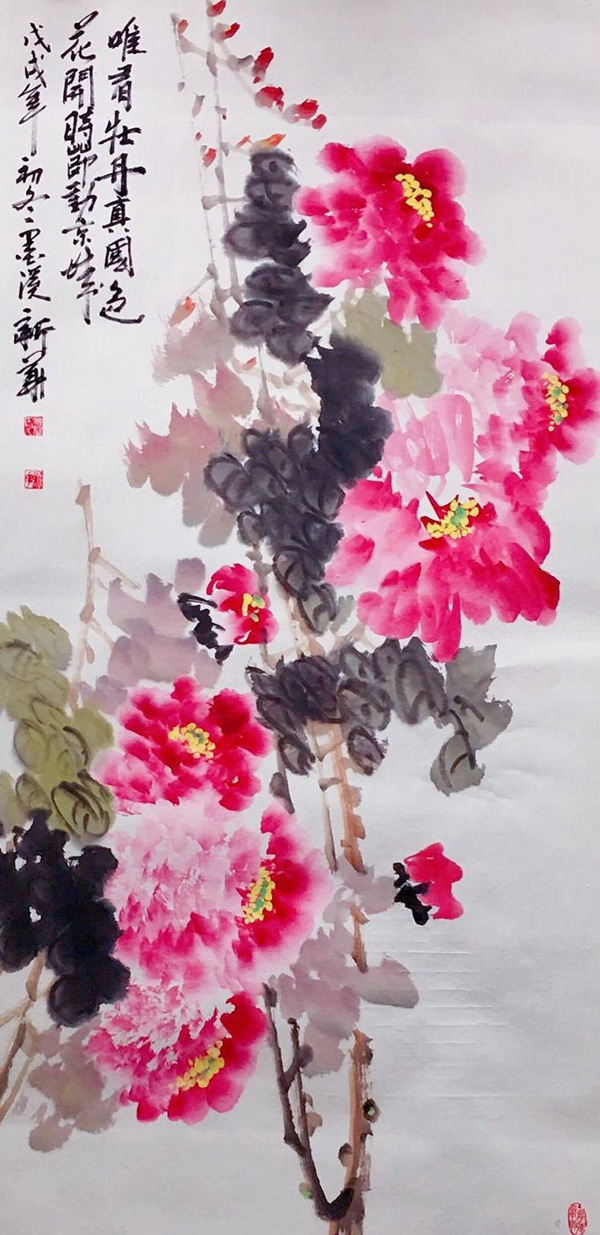 唯有牡丹真國色
花開時節動京城
戊戌年初冬墨溪新華